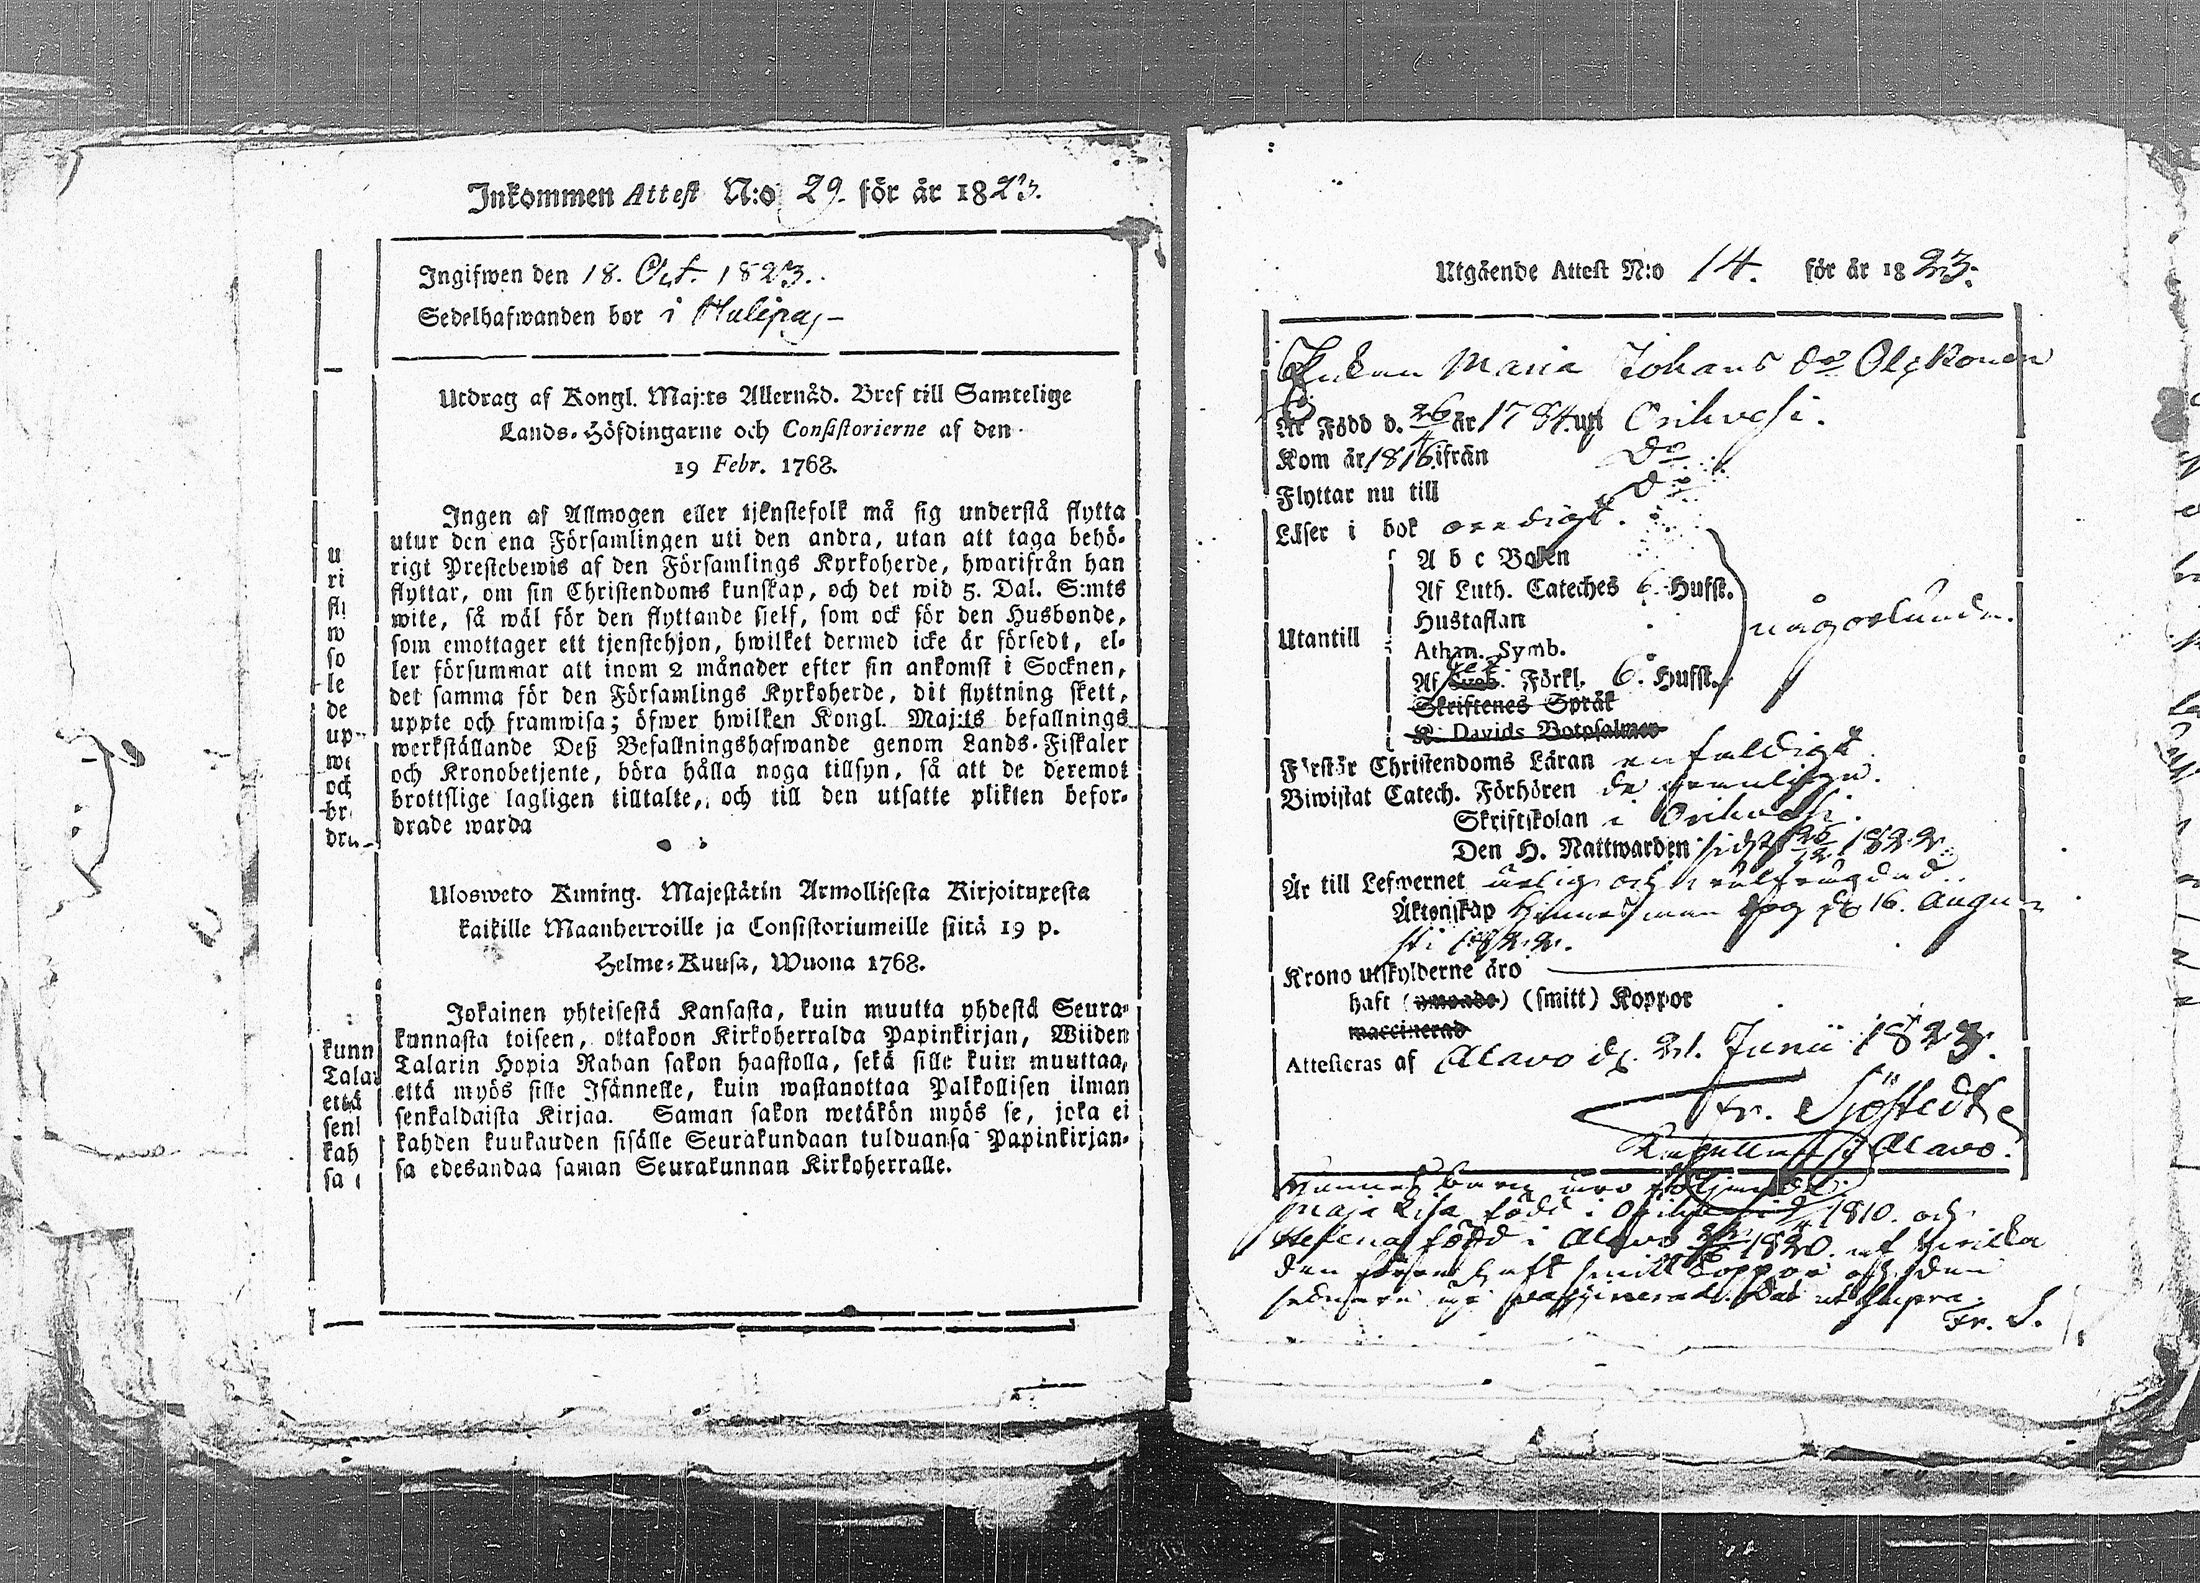 Inkommen Attest N:o 29. för år 1823.
Ingifwen den 18. Oct. 1823.
Sedelhafwanden bor i
Utdrag af Kongl. Maj:ts Allernåd. Bref till Samtelige
Lands-Höfdingarne och Consistorierne af den
19 Febr. 1768.
Ingen af Allmogen eller tjenstefolk må sig understå flytta
utur den ena Församlingen uti den andra, utan att taga behö-
rigt Prestebewis af den Församlings Kyrkoherde, hwarifrån han
flyttar, om sin Christendoms kunskap, och det wid 5. Dal. S:mts
wite, så wäl för den flyttande sielf, som ock för den Husbonde,
som emottager ett tjenstehjon, hwilket dermed icke är försedt, el-
ler försummar att inom 2 månader efter sin ankomst i Socknen,
det samma för den Församlings Kyrkoherde, dit flyttning skett,
uppte och framwisa; öfwer hwilken Kongl. Maj:ts befallnings
werkställande Deß Befallningshafwande genom Lands-Fiskaler
och Kronobetjente, böra hålla noga tillsyn, så att de deremot
brottslige lagligen tilltalte, och till den utsatte plikten befor-
drade warda
Ulosweto Kuning. Majestätin Armollisesta Kirjoituxesta
kaikille Maanherroille ja Consistoriumeille siitä 19 p.
Helme-Kuusa, Wuona 1768.
Jokainen yhteisestä Kansasta, kuin muutta yhdestä Seura-
kunnasta toiseen, ottakoon Kirkoherralda Papinkirjan, Wiiden
Talarin Hopia Rahan sakon haastolla, sekä sille kuin muuttaa,
että myös sille Isännelle, kuin wastanottaa Palkollisen ilman
senkaldaista Kirjaa. Saman sakon wetäkön myös se, joka ei
kahden kuukauden sisälle Seurakundaan tulduansa Papinkirjan-
sa edesandaa saman Seurakunnan Kirkoherralle.
u
ri
fly
w
so
le
de
up
we
och
br
dra
kunn
Talar
että
senk
kah
sa
Utgående Attest N:o 14. för år 1823.
Enkan Maria Johans do Olckonen
Är Född d. 26/4 år 1784 uti Orihvesi.
Kom år 1816 ifrån Do
Flyttar nu till do
Läser i bok oredigt.
A b c Boken
Af Luth. Cateches 6 Hufst.
Hustaflan
Utantill någorlunda.
Athan. Symb.
Af Sweb. Förkl. 6. Hufst.
Skriftenes Språk
K. Davids Botpsalmer
Förstår Christendoms Läran enfaldigt
Biwistat Catech. Förhören de
Skriftskolan i Orihvesi.
Den H. Nattwarden sidst 26/12 1822.
Är till Lefwernet ärlig och
Äktenskap hennes man dog d 16. Augu-
sti 1822.
Krono utskylderne äro
haft (ympade) (smitt) Koppor
waccinerad
Attesteras af Alavo d. 21. Junii 1823.
Fr. Sjöstedt
Kapellan i Alavo.
hennes barn äro följande:
Maja Lisa född i 1810. och
Helena född i Alavo 1820. af hvilka
den förra haft smitt koppor och den
sednare är vaccinerad. Dat ut supra.
Fr. S.